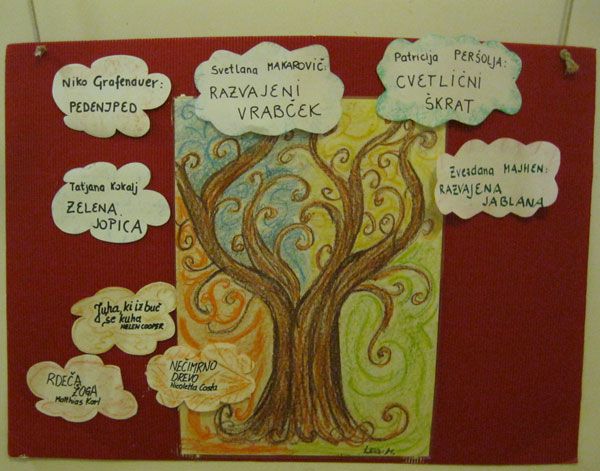 Niko Grafenauer:
PEDENJPED
Svetlana MAKAROVIČ:
RAZVAJENI
VRABČEK
Patricija PERŠOLJA:
CVETLIČNI
ŠKRAT
Tatjana Kokalj
ZELENA
JOPICA
Zvezdana MAJHEN:
RAZVAJENA
JABLANA
Juha, ki iz buč
se kuha
HELEN COOPER
RDEČA
ŽOGA
Matthias Karl
NEČIMRNO
DREVO
Nicoletta Costa